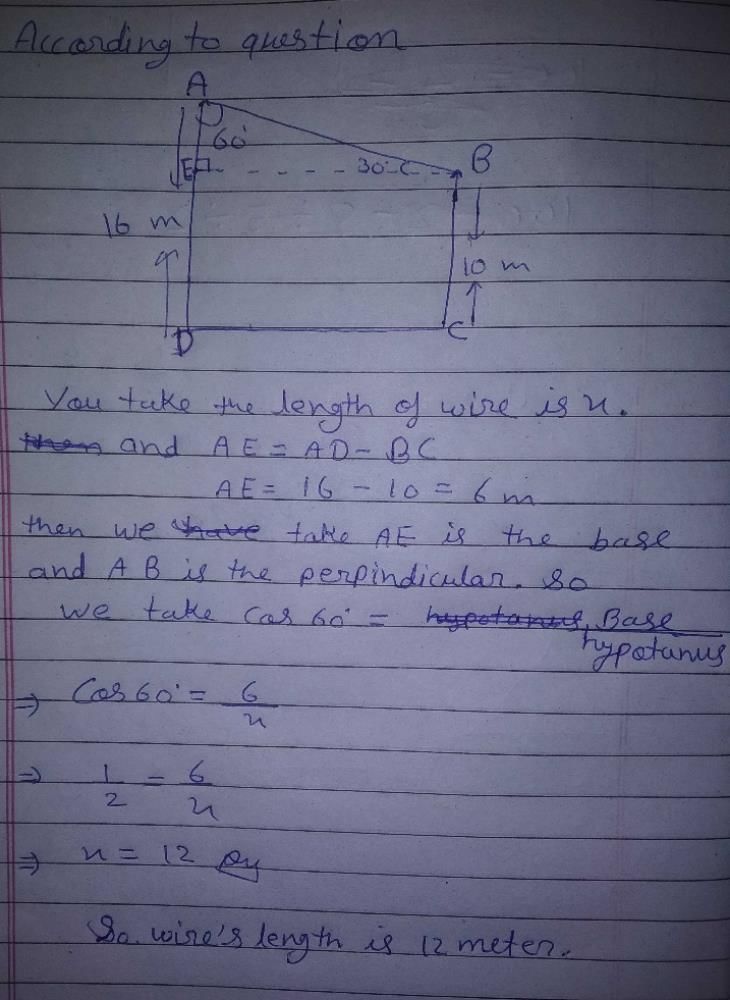 According to question
A
60°
E
30°
B
16 m
10 m
D
C
You take the length of wire is x.
then and AE = AD - BC
AE = 16 - 10 = 6 m
then we have take AE is the base
and AB is the perpindicular. So
we take Cos 60° = hypotanus Base
hypotanus
⇒ Cos 60° = 6/x
⇒ 1/2 = 6/x
⇒ x = 12
So wire's length is 12 meter.